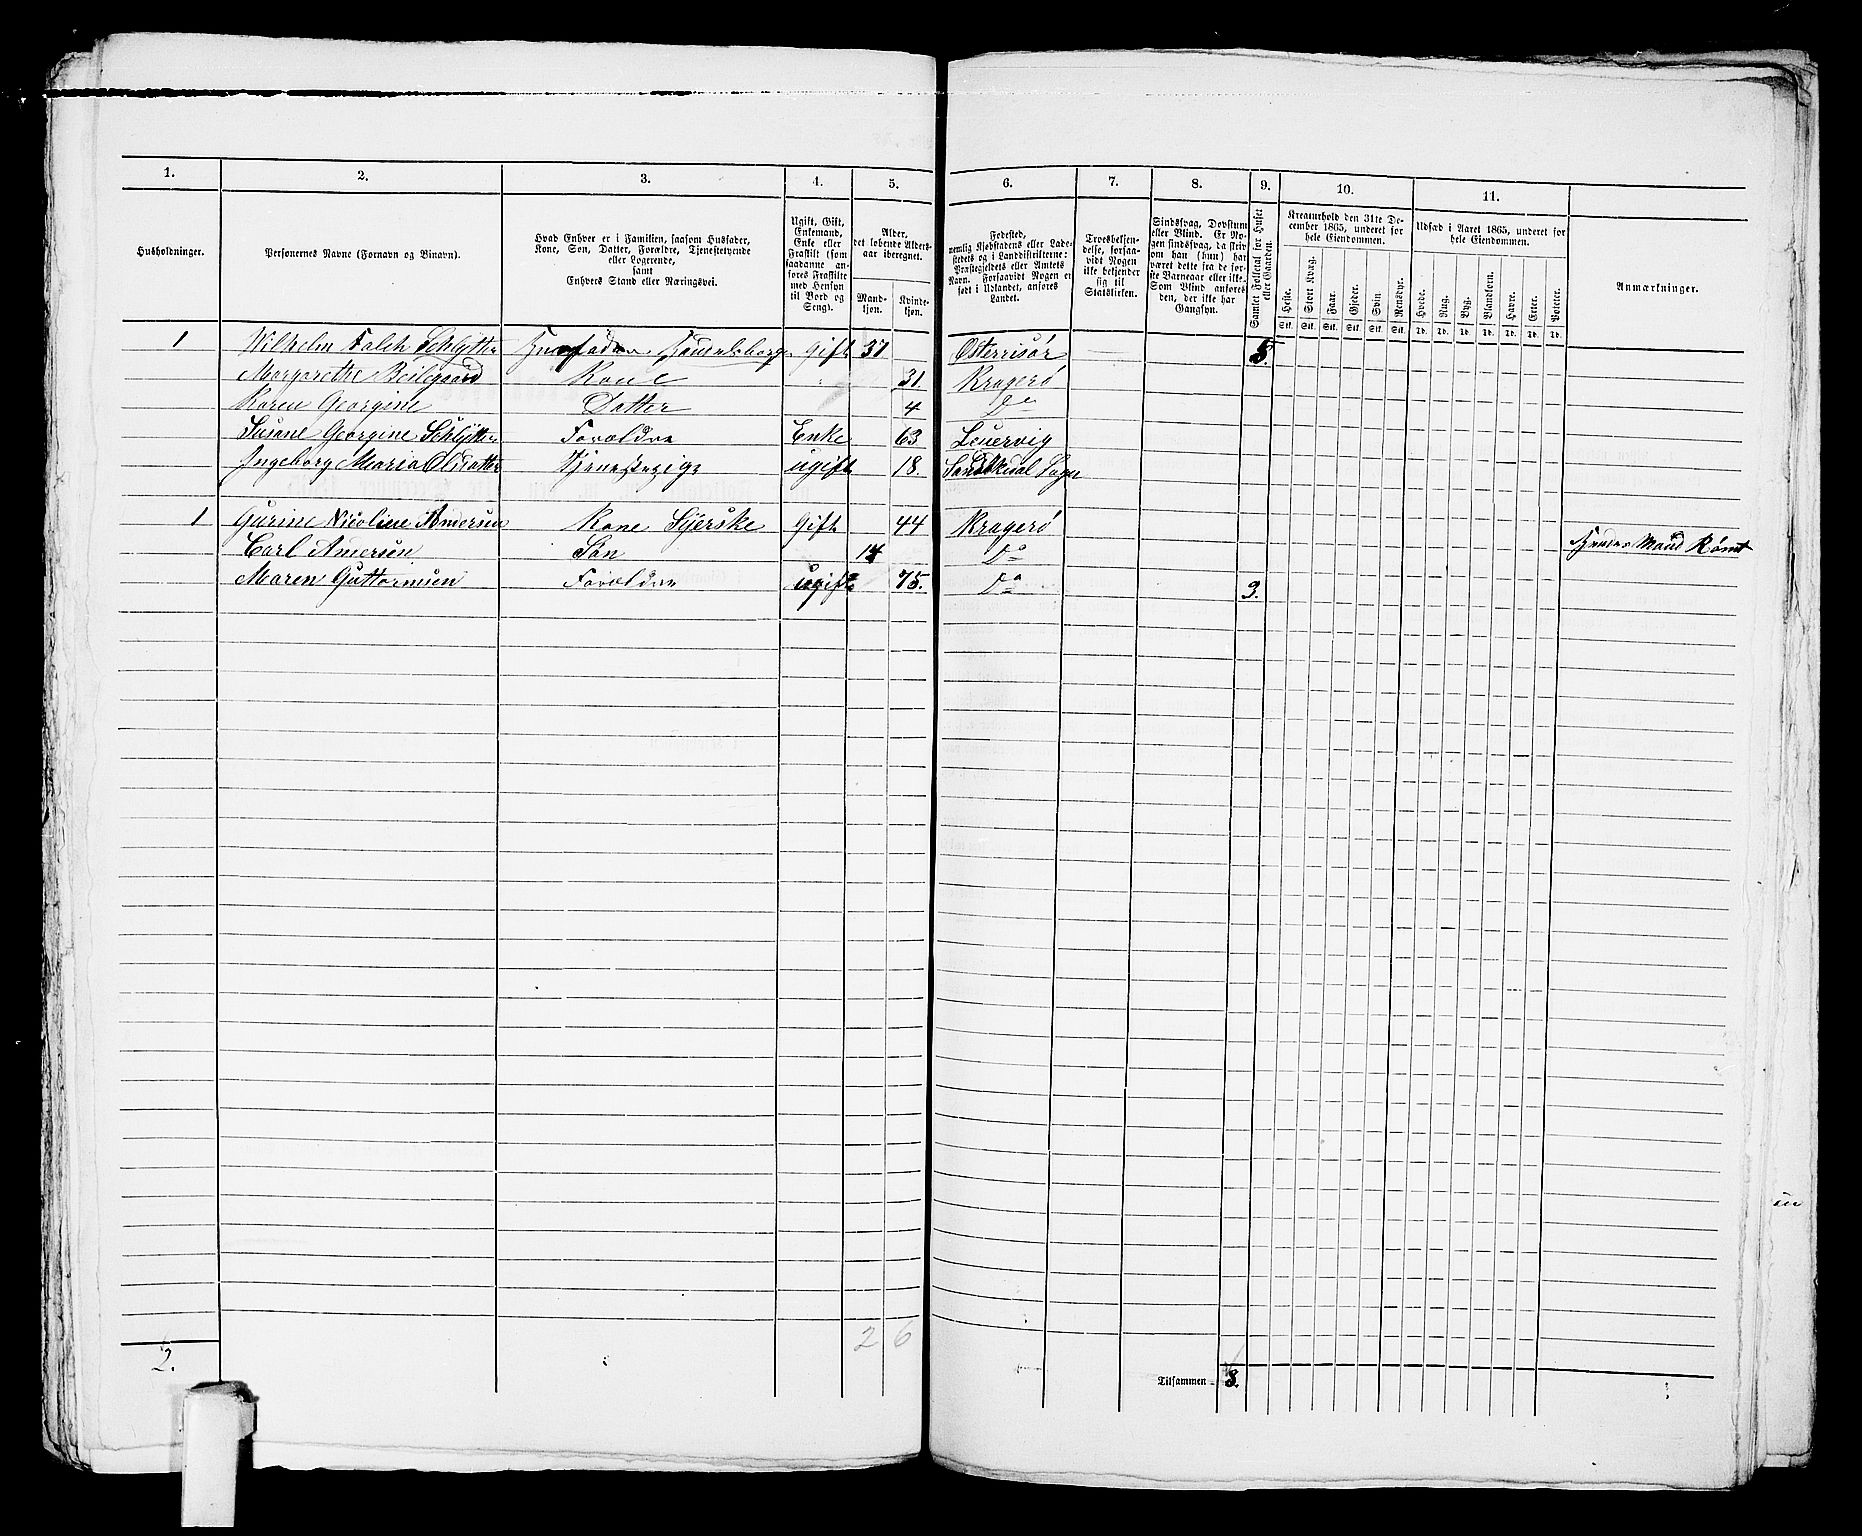 1. 2. 3. 4. 5. 6. 7. 8. 9. 10. 11.
Husholdninger.
Personernes Navne (Fornavn og Binavn).
Hvad Enhver er i Familien, saasom Husfader,
Kone, Søn, Datter, Forældre, Tjenestetyende
eller Logerende,
samt
Enhvers Stand eller Næringsvei.
Ugift, Gift,
Enkemand,
Enke eller
Fraskilt (som
saadanne an-
føres Fraskilte
med Hensyn
til Bord og
Seng).
Alder,
det løbende Alders-
aar iberegnet.
Mand-
kjøn.
Kvinde-
kjøn.
Fødested,
nemlig Kjøbstadens eller Lade-
stedets og i Landdistrikterne:
Præstegjeldets eller Amtets
Navn. Forsaavidt Nogen er
født i Udlandet, anføres
Landet.
Troesbekjen-
delse, forsaa-
vidt Nogen
ikke bekjender
sig til
Statskirken.
Sindssvag, Døvstum
eller Blind. Er No-
gen sindssvag, da skriv
om han (hun) har
været dette fra de før-
ste Barneaar eller ikke.
Som Blind anføres
den, der ikke har
Gangsyn.
Samlet Folketal for Huset
eller Gaarden.
Kreaturhold den 31te De-
cember 1865, underet for
hele Eiendommen.
Heste. Stort Kvæg. Faar. Gjeder. Svin. Rensdyr.
Stk. Stk. Stk. Stk. Stk. Stk.
Udsæd i Aaret 1865, underet for
hele Eiendommen.
Hvede. Rug. Byg. Blandkorn. Havre. Erter. Poteter.
Td. Td. Td. Td. Td. Td. Td.
Anmærkninger.
1 Wilhelm Falch Schlytter Huusfader gift 37 Østerrisør 5.
Margarethe Beilegaard Kone 31. Kragerø
Karen Georgine Datter 4 Do
Susane Georgine Schlytter Forældre Enke 63
Ingeborg Maria Olsdatter Tjenestepige ugift 18.
1 Gurine Nicoline Andersen Kone gift 44 Kragerø
Carl Andersen Søn 14 Do
Maren Guttormsen Forældre ugift 75. Do 3.
2. 2 6
Tilsammen 8.